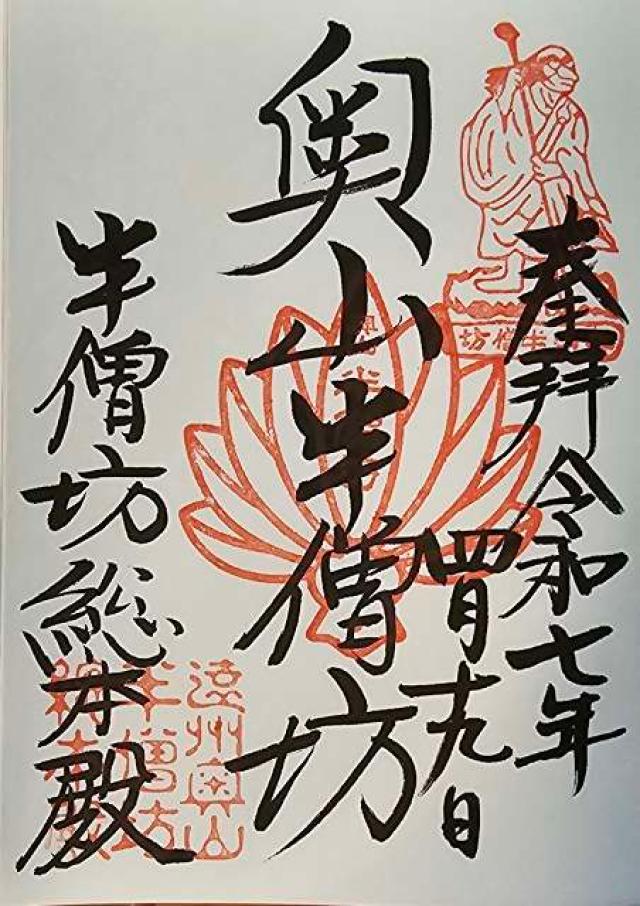 奉拝 令和七年
四月十九日
奥山半僧坊
半僧坊総本殿
半僧坊
遠州奥山
半僧坊
総本殿